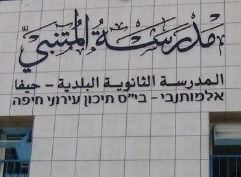 مدرسة المتنبي
المدرسة الثانوية البلدية - حيفا
אלמותנבי - בי״ס תיכון עירוני חיפה